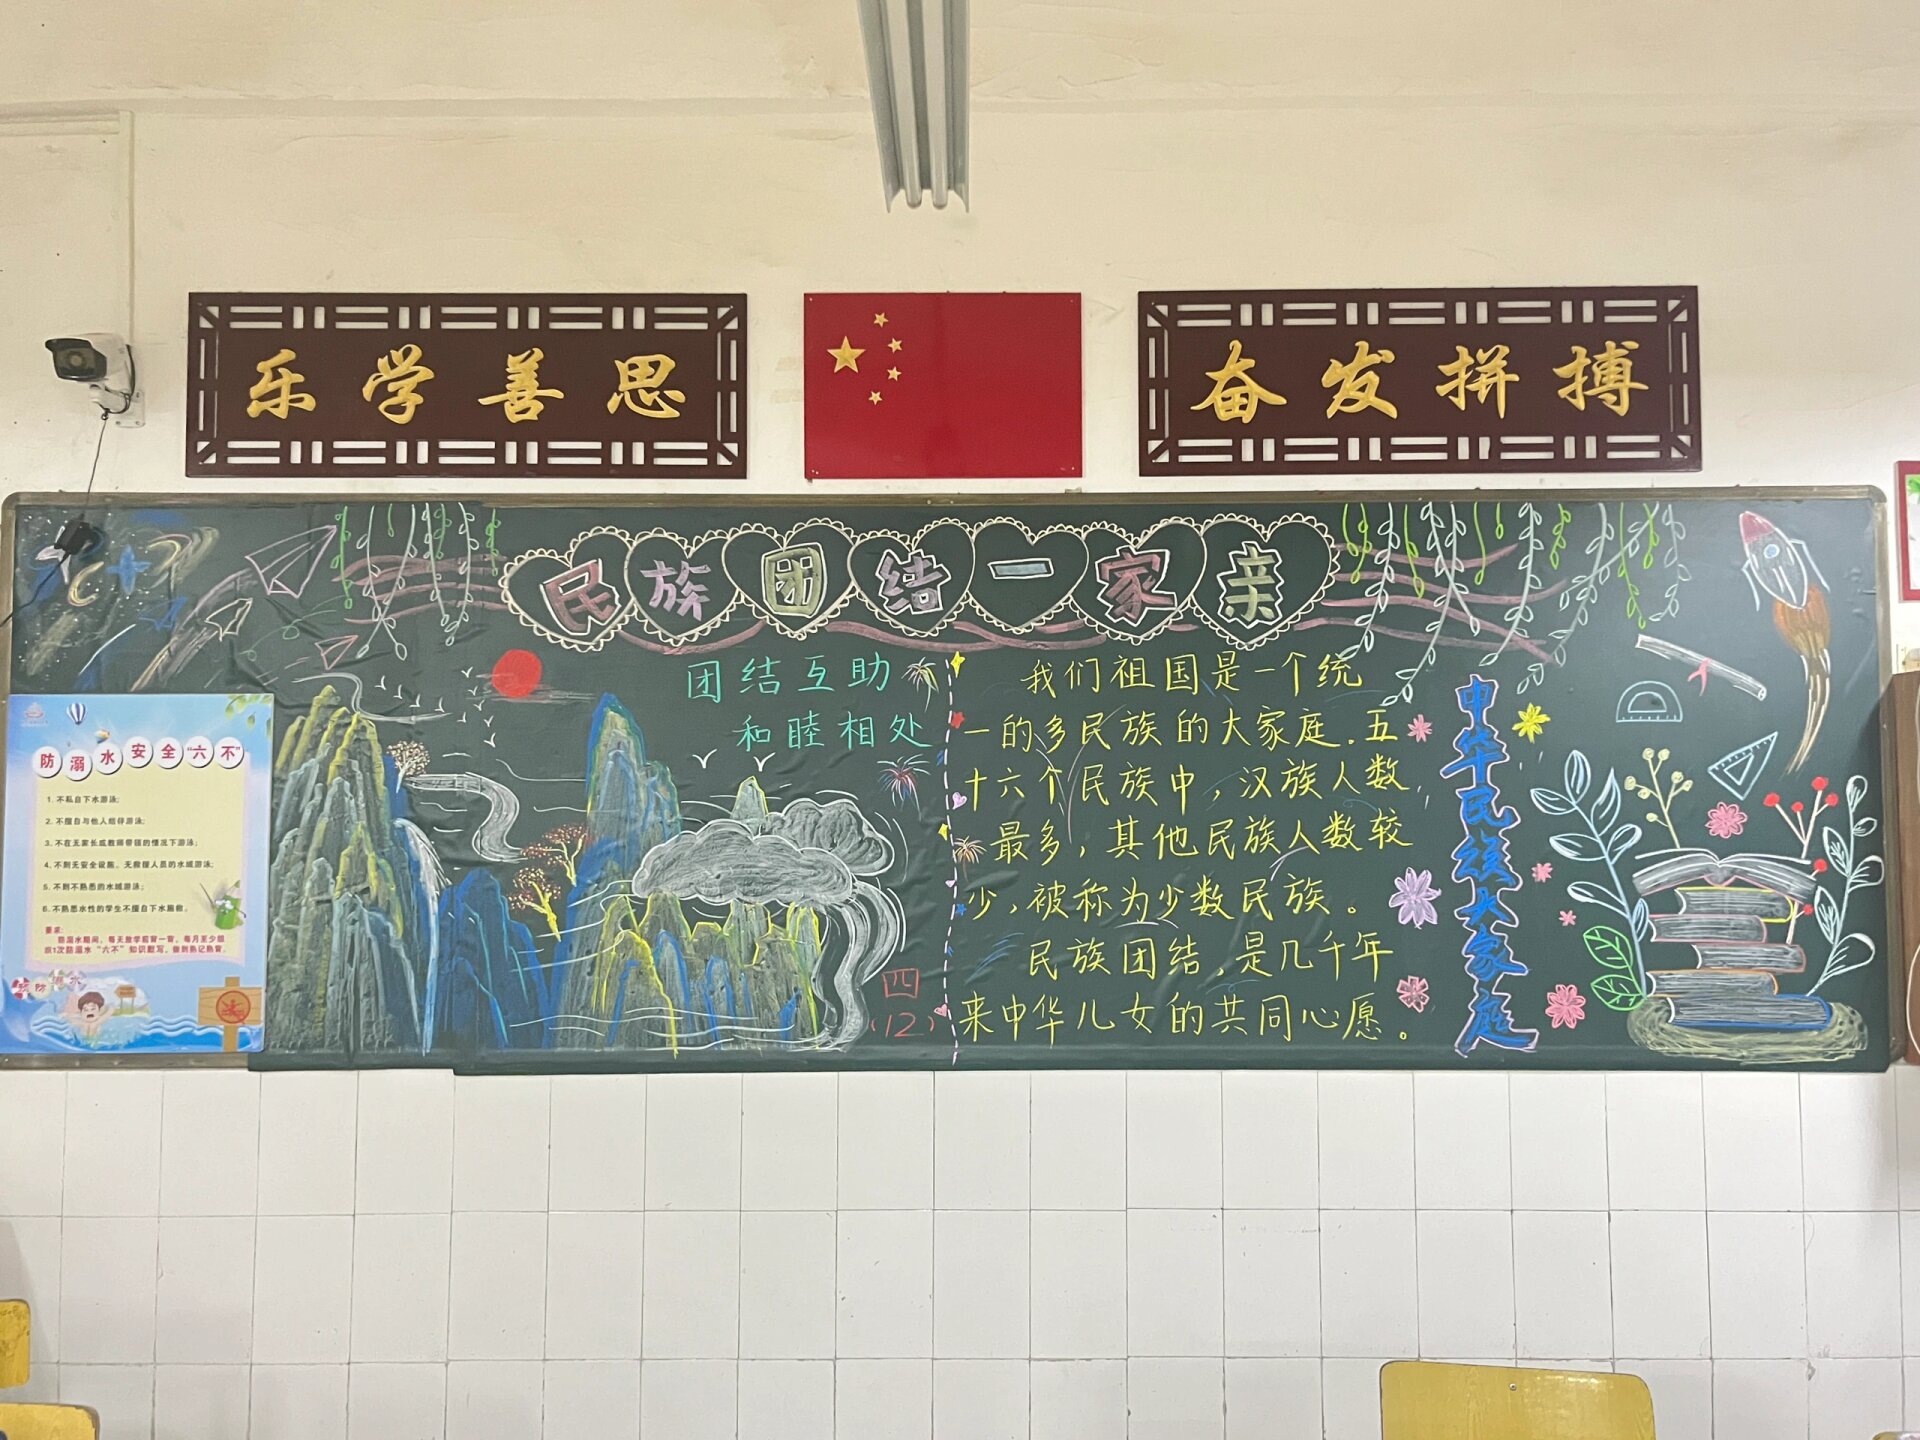 乐学善思
奋发拼搏
民族团结一家亲
团结互助
和睦相处
四
(12)
我们祖国是一个统
一的多民族的大家庭.五
十六个民族中，汉族人数
最多，其他民族人数较
少，被称为少数民族。
民族团结，是几千年
来中华儿女的共同心愿。
中华民族大家庭
防溺水安全“六不”
1.不私自下水游泳;
2.不擅自与他人结伴游泳;
3.不在无家长或教师带领的情况下游泳;
4.不到无安全设施、无救援人员的水域游泳;
5.不到不熟悉的水域游泳;
6.不熟悉水性的学生不擅自下水施救。
要求:
防溺水期间，每天放学前背一背，每月至少组
织1次防溺水“六不”知识默写，做到熟记熟背。
预防溺水